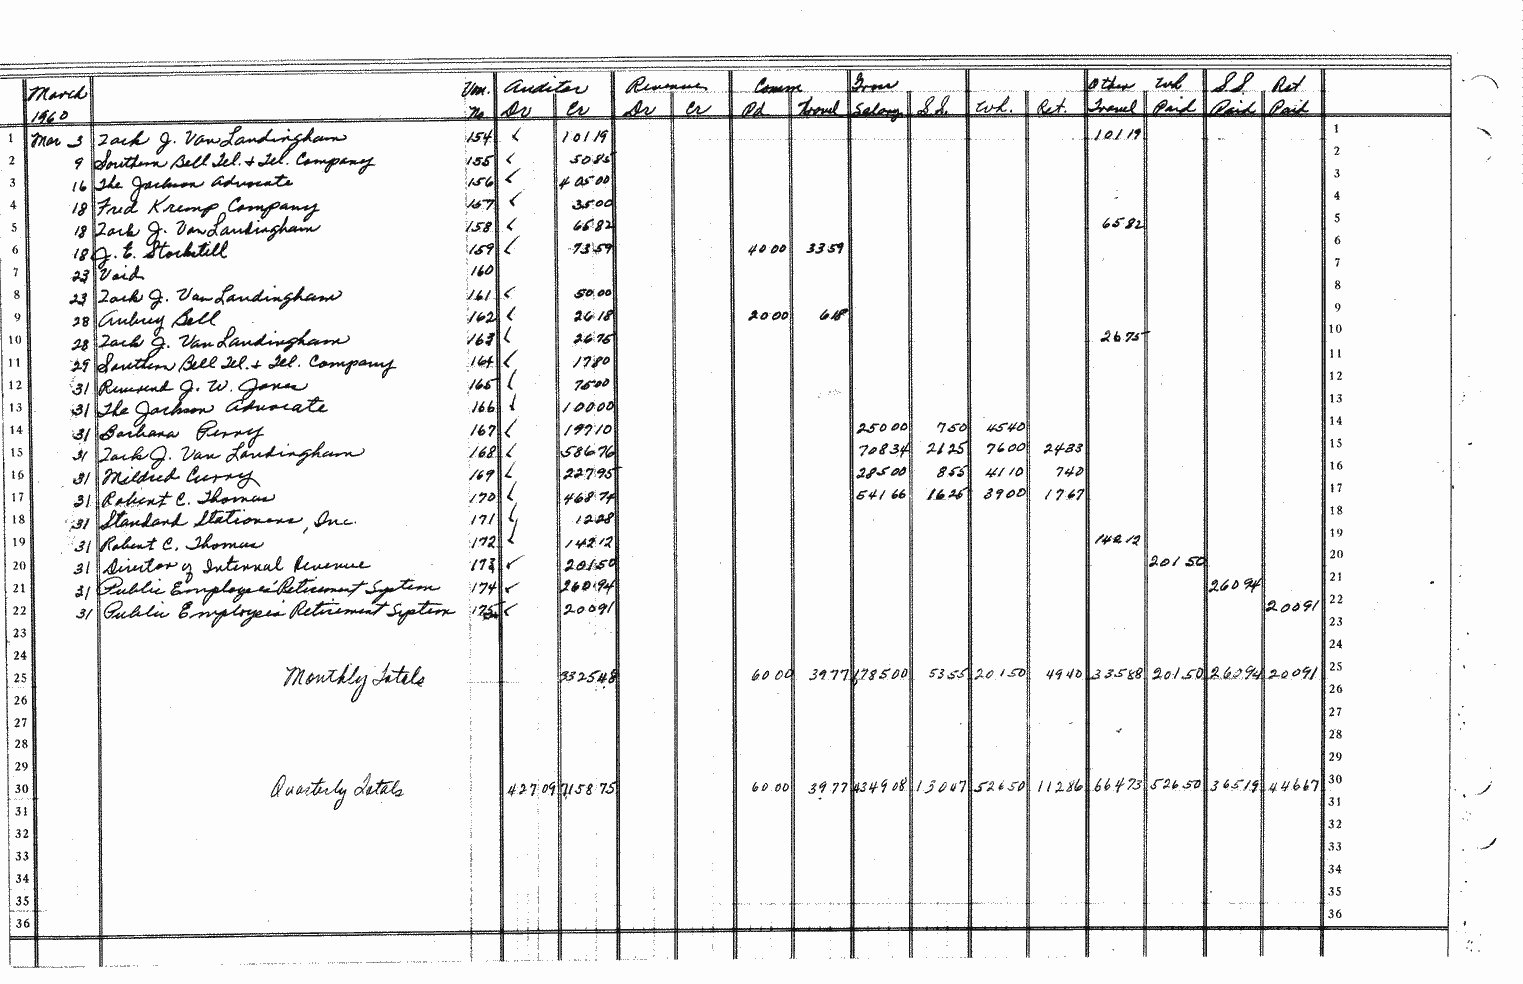 March 1960 Van. No Auditor Dr Cr Revenue Dr Cr Comm Pd Travel Gross Salary S.S. Wh. Ret. Other Travel Wh Paid S.S. Paid Ret Paid
1 Mar 3 Zack J. Van Landingham 154 ✓ 101 19 101 19 1
2 9 Southern Bell Tel. + Tel. Company 155 ✓ 50 85 2
3 16 The Jackson Advocate 156 ✓ 405 00 3
4 18 Fred Kremp Company 157 ✓ 35 00 4
5 18 Zack J. Van Landingham 158 ✓ 65 82 65 82 5
6 18 J. E. Stockstill 159 ✓ 73 59 40 00 33 59 6
7 23 Void 160 7
8 23 Zack J. Van Landingham 161 ✓ 50 00 8
9 28 Aubrey Bell 162 ✓ 26 18 20 00 6 18 9
10 28 Zack J. Van Landingham 163 ✓ 26 75 26 75 10
11 29 Southern Bell Tel. + Tel. Company 164 ✓ 17 80 11
12 31 Reverend J. W. Jones 165 ✓ 75 00 12
13 31 The Jackson Advocate 166 ✓ 100 00 13
14 31 Barbara Perry 167 ✓ 197 10 250 00 7 50 45 40 14
15 31 Zack J. Van Landingham 168 ✓ 586 76 708 34 21 25 76 00 24 33 15
16 31 Mildred Curry 169 ✓ 227 95 285 00 8 55 41 10 7 40 16
17 31 Robert C. Thomas 170 ✓ 468 74 541 66 16 25 39 00 17 67 17
18 31 Standard Stationers, Inc. 171 ✓ 12 28 18
19 31 Robert C. Thomas 172 ✓ 142 12 142 12 19
20 31 Director of Internal Revenue 173 ✓ 201 50 201 50 20
21 31 Public Employees' Retirement System 174 ✓ 260 94 260 94 21
22 31 Public Employees Retirement System 175 ✓ 200 91 200 91 22
23 23
24 24
25 Monthly Totals 3325 48 60 00 39 77 1785 00 53 55 201 50 49 40 335 88 201 50 260 94 200 91 25
26 26
27 27
28 28
29 29
30 Quarterly Totals 427 09 7158 75 60 00 39 77 4349 08 130 47 526 50 112 86 664 73 526 50 365 19 446 67 30
31 31
32 32
33 33
34 34
35 35
36 36